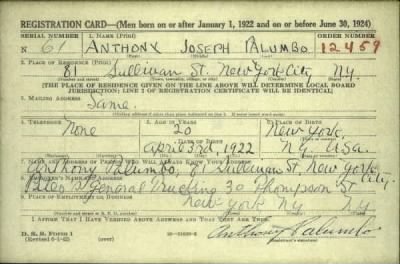 REGISTRATION CARD—(Men born on or after January 1, 1922 and on or before June 30, 1924)
SERIAL NUMBER 1. NAME (Print) ORDER NUMBER
N 61 ANTHONY JOSEPH PALUMBO 12459
2. PLACE OF RESIDENCE (Print)
81 Sullivan St. New York City N.Y.
[THE PLACE OF RESIDENCE GIVEN ON THE LINE ABOVE WILL DETERMINE LOCAL BOARD
JURISDICTION; LINE 2 OF REGISTRATION CERTIFICATE WILL BE IDENTICAL]
3. MAILING ADDRESS
Same.
4. TELEPHONE 5. AGE IN YEARS 6. PLACE OF BIRTH
None 20 New York.
DATE OF BIRTH
April 3rd, 1922 N.Y. U.S.A.
7. NAME AND ADDRESS OF PERSON WHO WILL ALWAYS KNOW YOUR ADDRESS
Anthony Palumbo, 81 Sullivan St, New York City.
8. EMPLOYER'S NAME AND ADDRESS
General Trucking 30 Thompson St.
9. PLACE OF EMPLOYMENT OR BUSINESS
New York N.Y. N.Y.
I AFFIRM THAT I HAVE VERIFIED ABOVE ANSWERS AND THAT THEY ARE TRUE.
D. S. S. Form 1
Anthony Palumbo